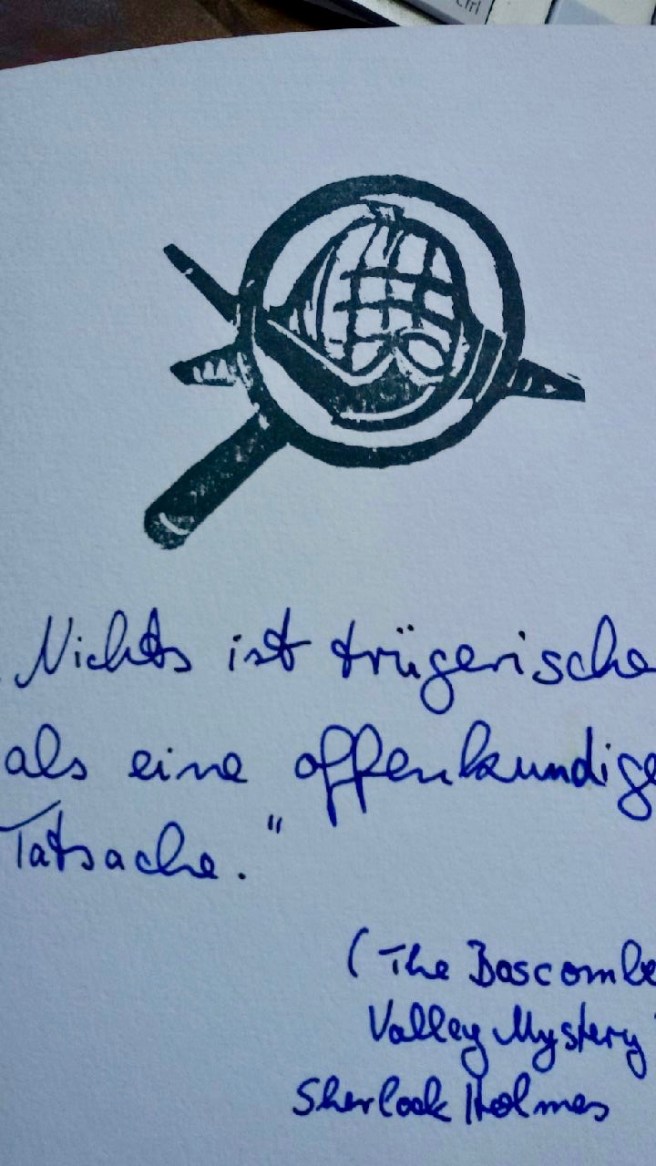 Ctrl
Nichts ist trügerische
als eine offenkundige
Tatsache."
(The Boscombe
Valley Mystery
Sherlock Holmes